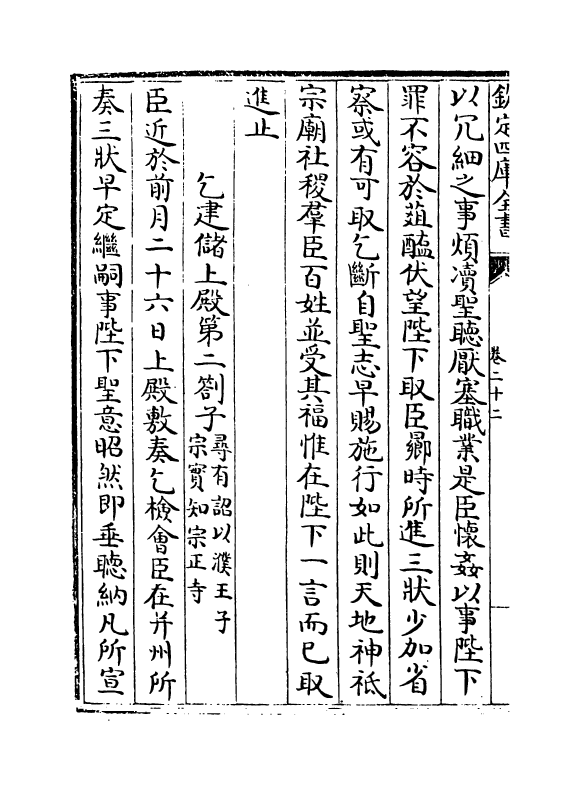 欽定四庫全書
卷二十二
以冗細之事煩瀆聖聽厭塞職業是臣懷姦以事陛下
罪不容於葅醢伏望陛下取臣曏時所進三狀少加省
察或有可取乞斷自聖志早賜施行如此則天地神祇
宗廟社稷羣臣百姓並受其福惟在陛下一言而已取
進止
乞建儲上殿第二劄子尋有詔以濮王子
宗實知宗正寺
臣近於前月二十六日上殿敷奏乞檢會臣在并州所
奏三狀早定繼嗣事陛下聖意昭然即垂聽納凡所宣